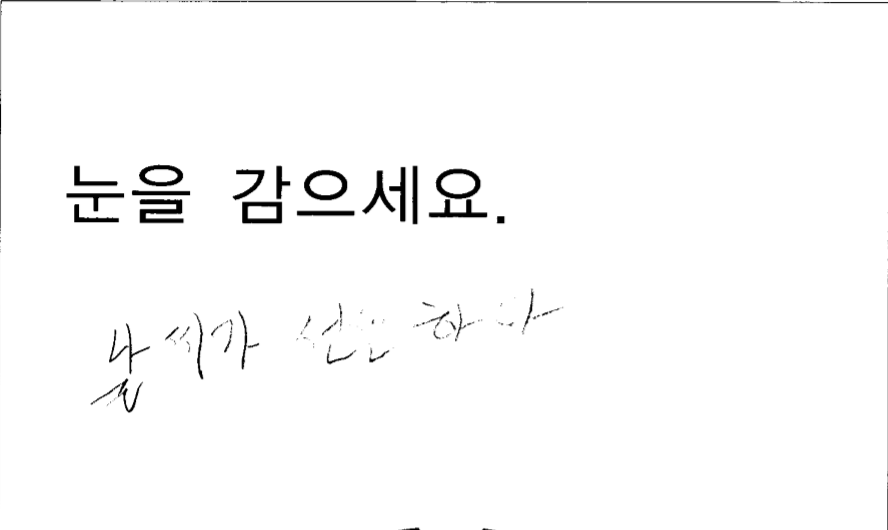 눈을 감으세요.
날씨가 선선하다